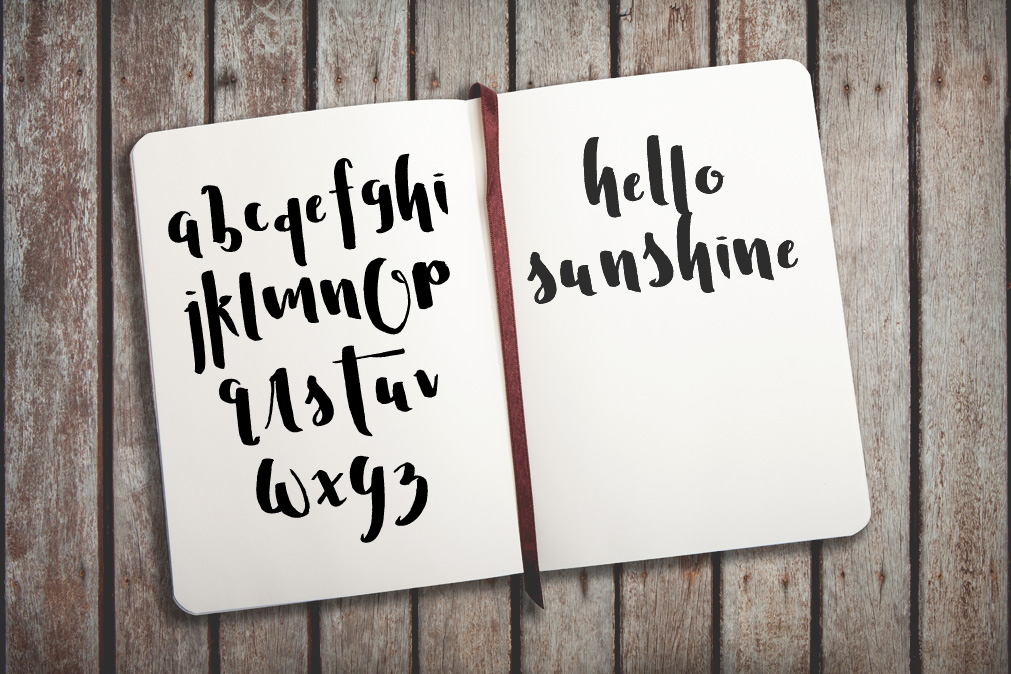 abcqefghi
jklmnop
qrstuv
wxyz
hello
sunshine